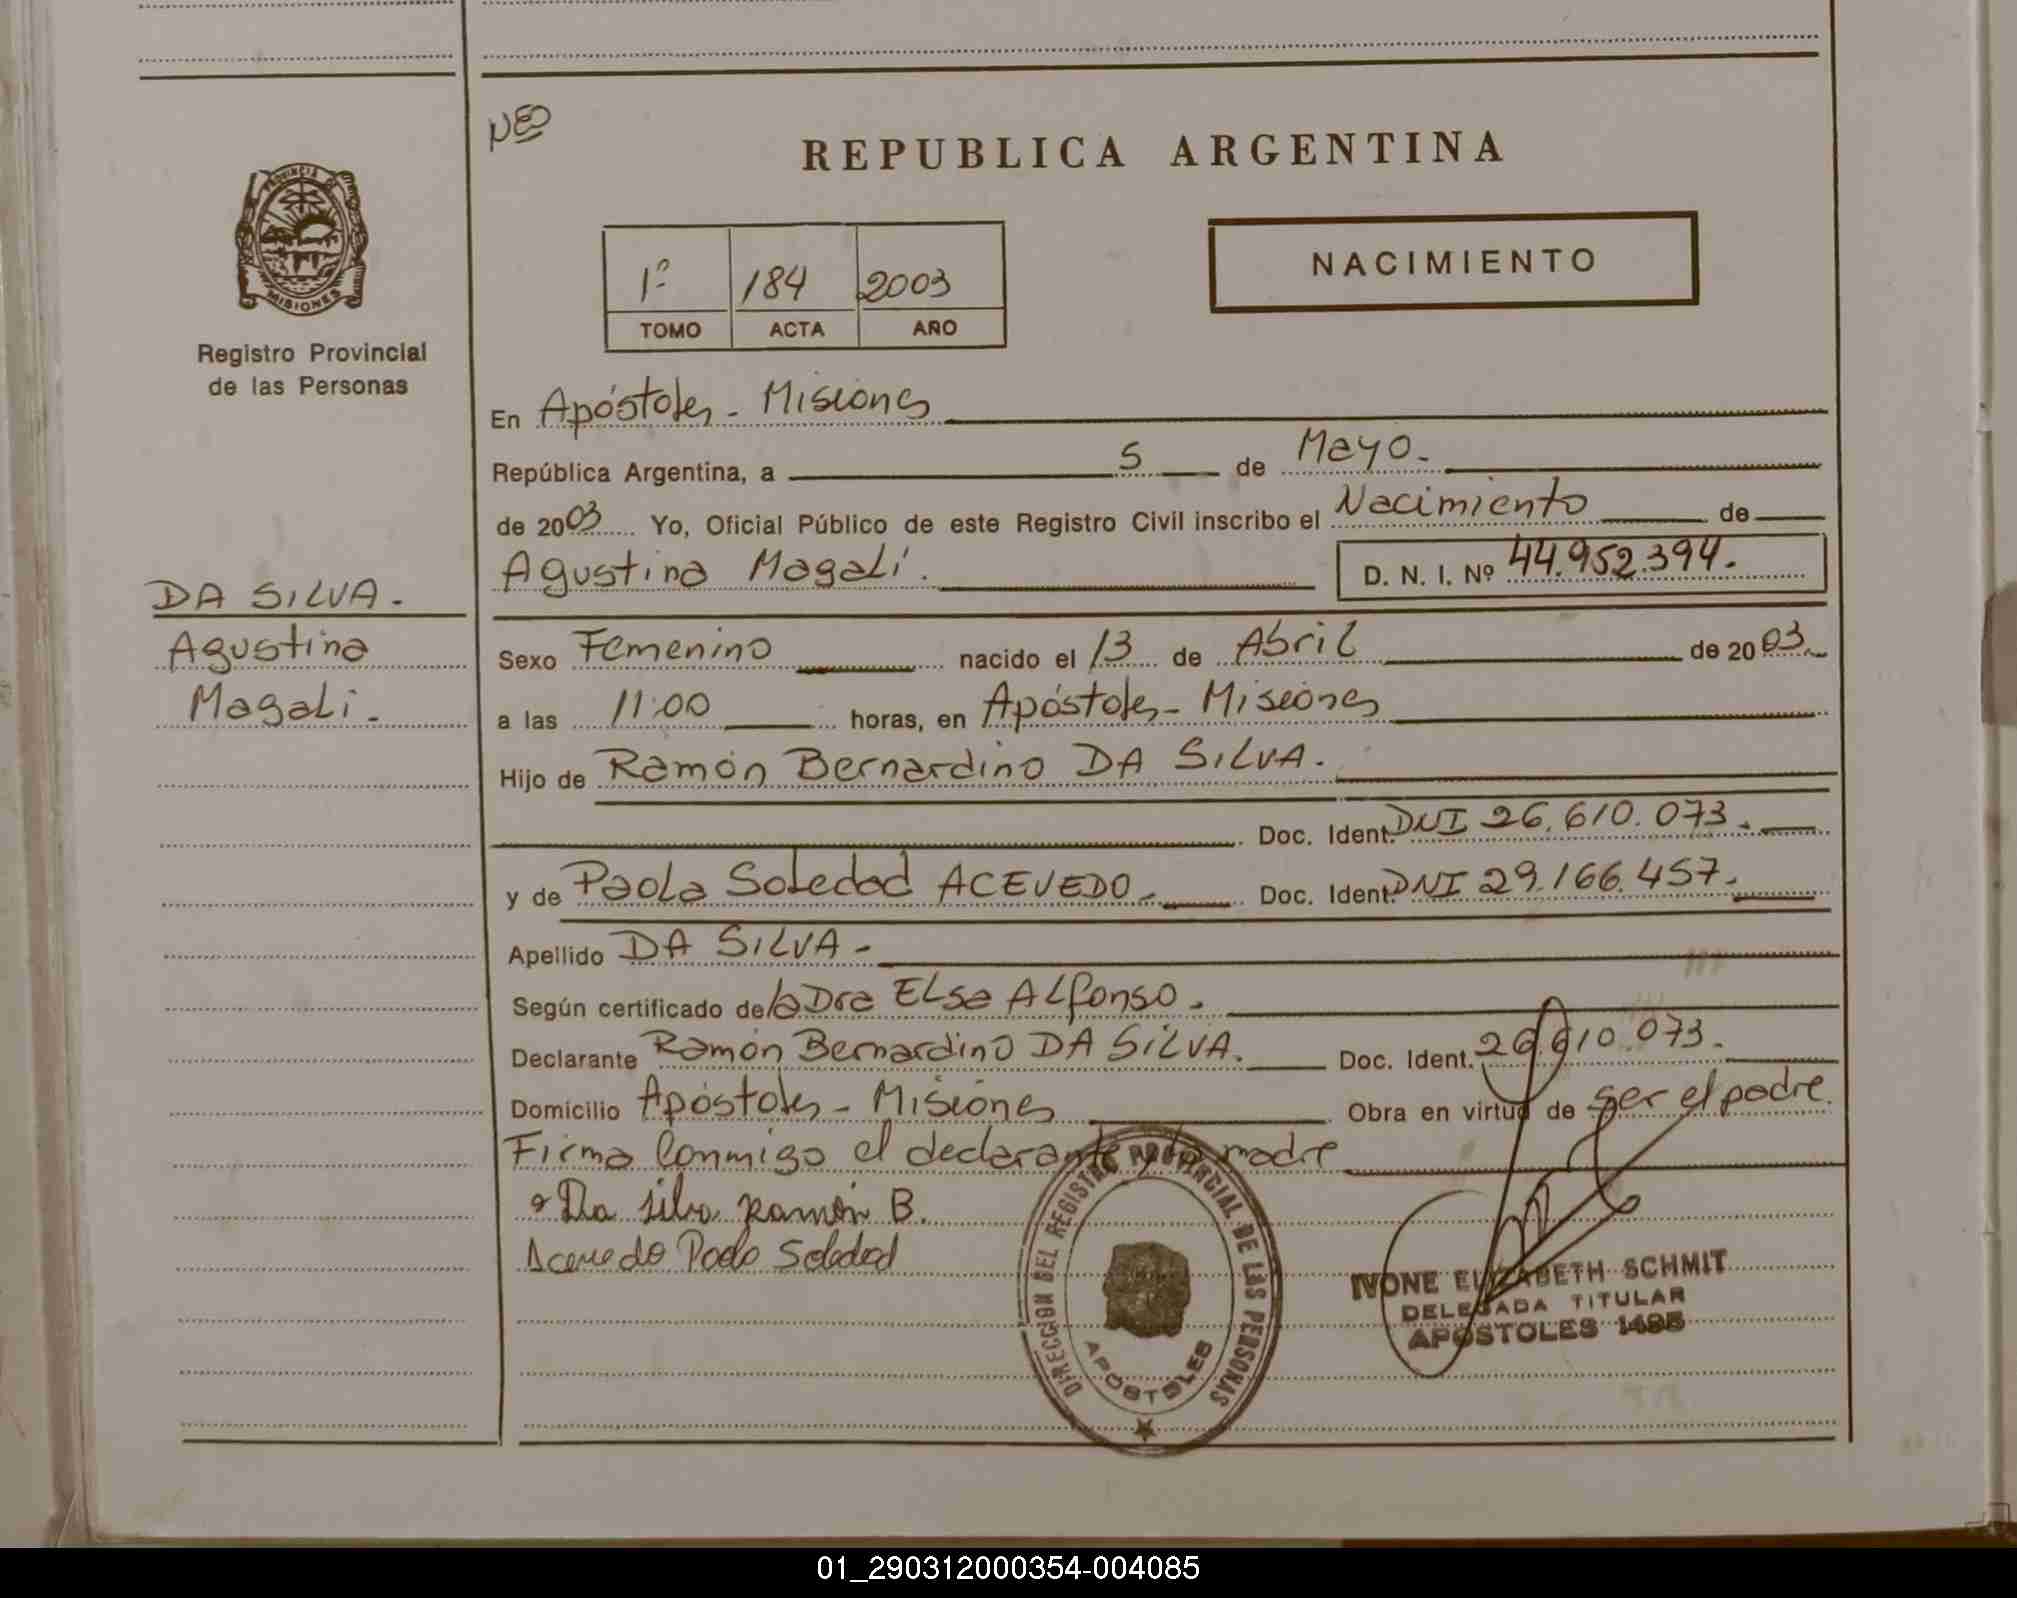 NEO
REPUBLICA ARGENTINA
PROVINCIA DE
MISIONES
Registro Provincial
de las Personas
1º 184 2003
TOMO ACTA AÑO
NACIMIENTO
En Apóstoles - Misiones
República Argentina, a 5 de Mayo.
de 2003 Yo, Oficial Público de este Registro Civil inscribo el Nacimiento de
Agustina Magalí. D. N. I. Nº 44.952.394.
DA SILVA.
Agustina
Magali.
Sexo Femenino nacido el 13 de Abril de 2003
a las 11:00 horas, en Apóstoles - Misiones
Hijo de Ramón Bernardino DA SILVA.
Doc. Ident. DNI 26.610.073.
y de Paola Soledad ACEVEDO. Doc. Ident. DNI 29.166.457.
Apellido DA SILVA -
Según certificado de la Dra Elsa Alfonso.
Declarante Ramón Bernardino DA SILVA. Doc. Ident. 26.610.073.
Domicilio Apóstoles - Misiones Obra en virtud de ser el padre.
Firma Conmigo el declarante y la madre
Da Silva Ramón B.
Acevedo Paola Soledad
DIRECCION DEL REGISTRO PROVINCIAL DE LAS PERSONAS
APOSTOLES
IVONE ELIZABETH SCHMIT
DELEGADA TITULAR
APOSTOLES 1495
01_290312000354-004085